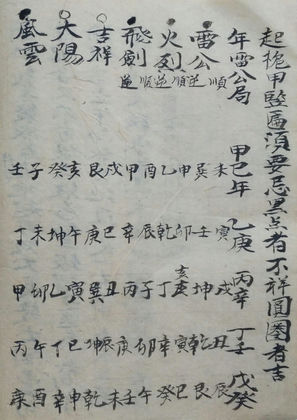 起桅甲竪匾須要忌黑点者不祥圓圈者吉
年雷公局 甲己年 乙庚 丙辛 丁壬 戊癸
雷公 順 未 寅 戌 丑 辰
逆 巽 壬 坤 乾 艮
火列 順 申 卯 亥 寅 巳
逆 乙 乾 丁 辛 癸
飛剑 順 酉 辰 子 卯 午
逆 甲 辛 丙 庚 壬
吉祥 戌 巳 丑 辰 未
艮 庚 巽 坤 乾
太陽 亥 午 寅 巳 申
癸 坤 乙 丁 辛
風雲 子 未 卯 午 酉
壬 丁 甲 丙 庚